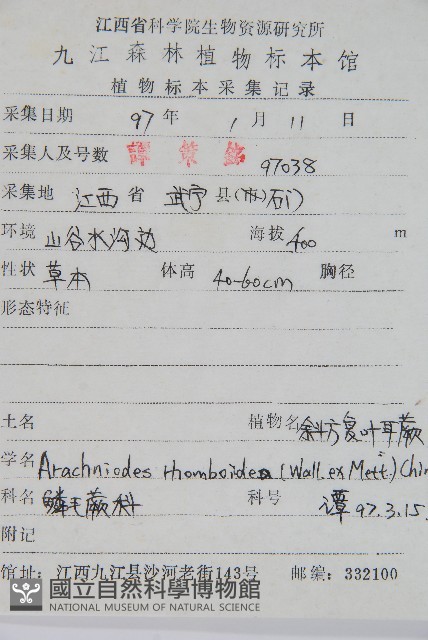 江西省科学院生物资源研究所
九江森林植物标本馆
植物标本采集记录
采集日期 97年 1月 11日
采集人及号数 譚策銘 97038
采集地 江西省 武宁县(市)石门
环境 山谷水沟边 海拔 400 m
性状 草本 体高 40-60cm 胸径
形态特征
土名 植物名 斜方复叶耳蕨
学名 Arachniodes rhomboidea (Wall. ex Mett.) Chin
科名 鳞毛蕨科 科号 谭 97.3.15.
附记
馆址: 江西九江县沙河老街143号 邮编: 332100
國立自然科學博物館
NATIONAL MUSEUM OF NATURAL SCIENCE